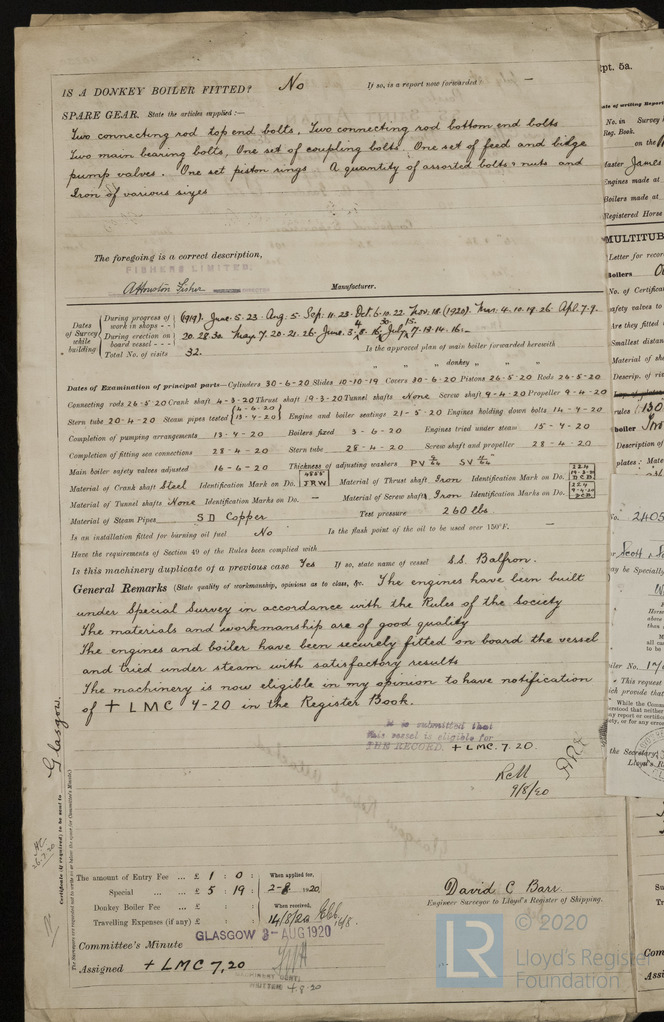 IS A DONKEY BOILER FITTED? No If so, is a report now forwarded? —
SPARE GEAR. State the articles supplied:—
Two connecting rod top end bolts, Two connecting rod bottom end bolts
Two main bearing bolts, One set of coupling bolts. One set of feed and bilge
pump valves. One set piston rings A quantity of assorted bolts & nuts and
Iron of various sizes
The foregoing is a correct description,
FISHERS LIMITED.
A Houston Fisher Manufacturer.
Dates of Survey while building
During progress of work in shops - - (1919). June. 5. 23. Aug. 5. Sep: 11. 23. Oct. 6. 10. 22. Nov. 18. (1920). Mar. 4. 10. 19. 26. Apl. 7. 9.
During erection on board vessel - - - 20. 28. 30. May. 7. 20. 21. 26. June. 3. 4. 8. 16. 30. July. 15. 7. 13. 14. 16.
Total No. of visits 32. Is the approved plan of main boiler forwarded herewith
" " " donkey " " "
Dates of Examination of principal parts—Cylinders 30-6-20 Slides 10-10-19 Covers 30-6-20 Pistons 26-5-20 Rods 26-5-20
Connecting rods 26-5-20 Crank shaft 4-3-20 Thrust shaft 19-3-20 Tunnel shafts None Screw shaft 9-4-20 Propeller 9-4-20
Stern tube 20-4-20 Steam pipes tested 13-4-20 Engine and boiler seatings 21-5-20 Engines holding down bolts 14-7-20
Completion of pumping arrangements 13-7-20 Boilers fixed 3-6-20 Engines tried under steam 15-7-20
Completion of fitting sea connections 28-4-20 Stern tube 28-4-20 Screw shaft and propeller 28-4-20
Main boiler safety valves adjusted 16-6-20 Thickness of adjusting washers PV SV
Material of Crank shaft Steel Identification Mark on Do. JRW Material of Thrust shaft Iron Identification Mark on Do. DCB
Material of Tunnel shafts None Identification Marks on Do. — Material of Screw shafts Iron Identification Marks on Do. DCB
Material of Steam Pipes SD Copper Test pressure 260 lbs
Is an installation fitted for burning oil fuel No Is the flash point of the oil to be used over 150°F. —
Have the requirements of Section 49 of the Rules been complied with
Is this machinery duplicate of a previous case Yes If so, state name of vessel S.S. Balfron.
General Remarks (State quality of workmanship, opinions as to class, &c. The engines have been built
under Special Survey in accordance with the Rules of the Society
The materials and workmanship are of good quality
The engines and boiler have been securely fitted on board the vessel
and tried under steam with satisfactory results
The machinery is now eligible in my opinion to have notification
of + LMC 7-20 in the Register Book.
It is submitted that
this vessel is eligible for
THE RECORD. + LMC. 7. 20.
9/8/20
Glasgow
Certificate (if required) to be sent to
The amount of Entry Fee ... £ 1 : 0 : When applied for,
Special ... ... £ 5 : 19 : 2-8 1920.
Donkey Boiler Fee ... £ : : When received,
Travelling Expenses (if any) £ : : 14/8/20
David C Barr
Engineer Surveyor to Lloyd's Register of Shipping.
Committee's Minute GLASGOW 3-AUG 1920
Assigned + LMC 7,20
© 2020
LR
Lloyd's Register
Foundation
Rpt. 5a.
No. in Survey
Reg. Book.
on the
Master James
Engines made at
Boilers made at
Registered Horse
MULTITUB
Letter for record
No. of Certifica
safety valves to
Are they fitted
Smallest distan
Material of sh
Descrip. of riv
rules (130
Description of
plates: Mate
No. 2405
may be Specially
This request
the Secretary
Lloyd's R